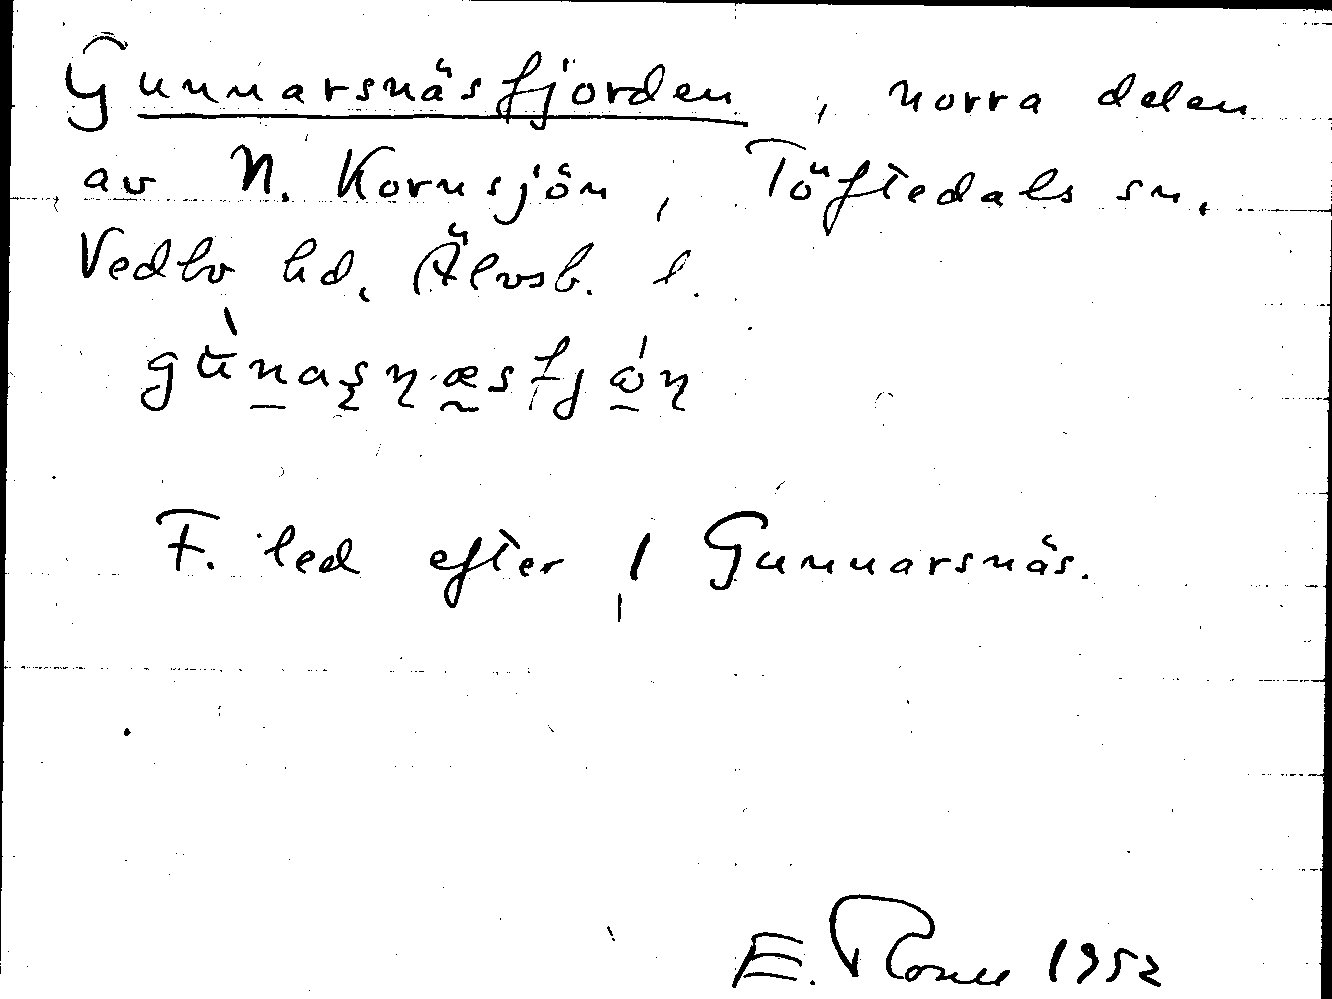 Gunnarsnäsfjorden, norra delen
av N. Kornsjön, Töftedals sn,
Vedbo hd, Älvsb. l.
F. led efter / Gunnarsnäs.
E. 1952